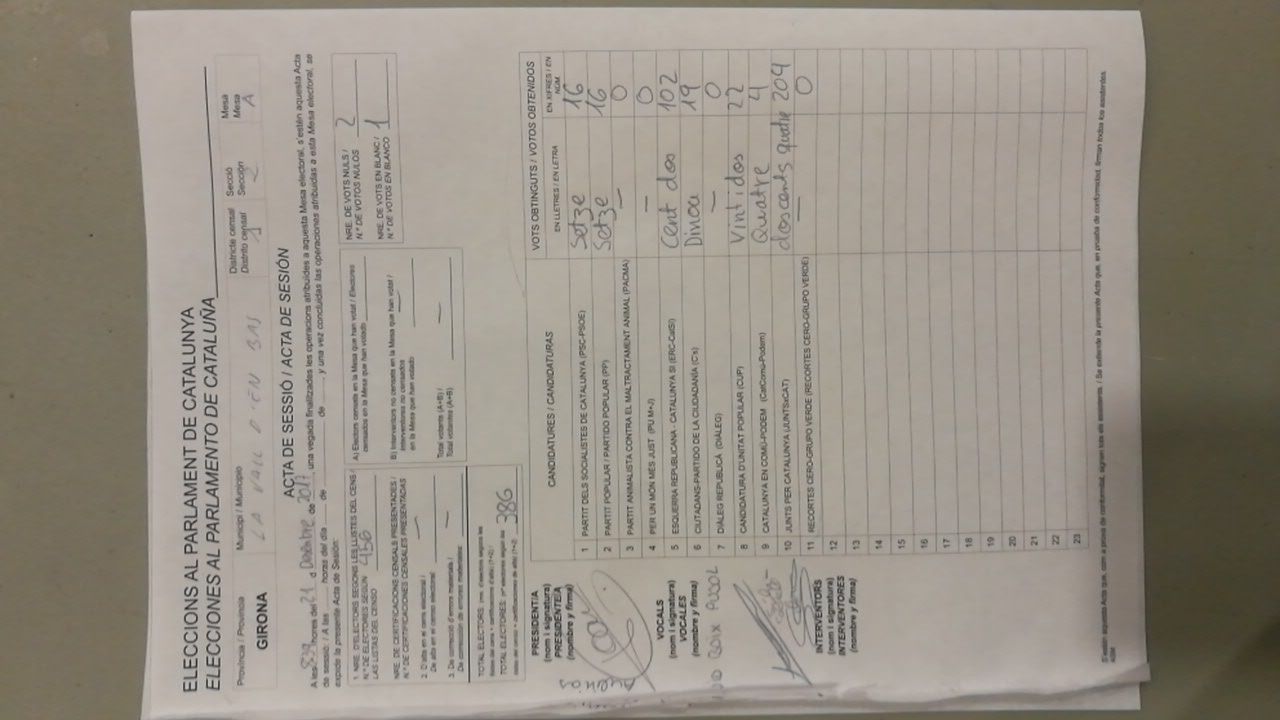 ELECCIONS AL PARLAMENT DE CATALUNYA
ELECCIONES AL PARLAMENTO DE CATALUÑA
Província / Provincia
GIRONA
Municipi / Municipio
LA VALL D'EN BAS
Districte censal
Distrito censal
1
Secció
Sección
2
Mesa
Mesa
A
ACTA DE SESSIÓ / ACTA DE SESIÓN
hores del 21 d Desembre de 2017, una vegada finalitzades les operacions atribuïdes a aquesta Mesa electoral, s'estén aquesta Acta
de sessió. / A las horas del día de de , y una vez concluidas las operaciones atribuidas a esta Mesa electoral, se
expide la presente Acta de Sesión:
1. NRE. D'ELECTORS SEGONS LES LLISTES DEL CENS /
N.º DE ELECTORES SEGÚN
LAS LISTAS DEL CENSO
NRE. DE CERTIFICACIONS CENSALS PRESENTADES /
N.º DE CERTIFICACIONES CENSALES PRESENTADAS
2. D'alta en el cens electoral /
De alta en el censo electoral:
3. De correcció d'errors materials /
De corrección de errores materiales:
TOTAL ELECTORS:
TOTAL ELECTORES:
386
A) Electors censats en la Mesa que han votat / Electores
censados en la Mesa que han votado
B) Interventors no censats en la Mesa que han votat /
Interventores no censados
en la Mesa que han votado
Total votants (A+B) /
Total votantes (A+B)
NRE. DE VOTS NULS /
N.º DE VOTOS NULOS
2
NRE. DE VOTS EN BLANC /
N.º DE VOTOS EN BLANCO
1
CANDIDATURES / CANDIDATURAS
VOTS OBTINGUTS / VOTOS OBTENIDOS
EN LLETRES / EN LETRA
EN XIFRES / EN NÚM.
1 PARTIT DELS SOCIALISTES DE CATALUNYA (PSC-PSOE) Setze 16
2 PARTIT POPULAR / PARTIDO POPULAR (PP) Setze 16
3 PARTIT ANIMALISTA CONTRA EL MALTRACTAMENT ANIMAL (PACMA) — 0
4 PER UN MÓN MÉS JUST (PU M+J) — 0
5 ESQUERRA REPUBLICANA - CATALUNYA SÍ (ERC-CatSí) Cent dos 102
6 CIUTADANS-PARTIDO DE LA CIUDADANÍA (C's) Dinou 19
7 DIÀLEG REPUBLICÀ (DIÀLEG) — 0
8 CANDIDATURA D'UNITAT POPULAR (CUP) Vintidos 22
9 CATALUNYA EN COMÚ-PODEM (CatComú-Podem) Quatre 4
10 JUNTS PER CATALUNYA (JUNTSxCAT) doscents quatre 204
11 RECORTES CERO-GRUPO VERDE (RECORTES CERO-GRUPO VERDE) — 0
12
13
14
15
16
17
18
19
20
21
22
23
PRESIDÈNCIA
(nom i signatura)
PRESIDENTE/A
(nombre y firma)
VOCALS
(nom i signatura)
VOCALES
(nombre y firma)
ROIX PUJOL
INTERVENTORS
(nom i signatura)
INTERVENTORES
(nombre y firma)
S'estén aquesta Acta que, com a prova de conformitat, signen tots els assistents. / Se extiende la presente Acta que, en prueba de conformidad, firman todos los asistentes.